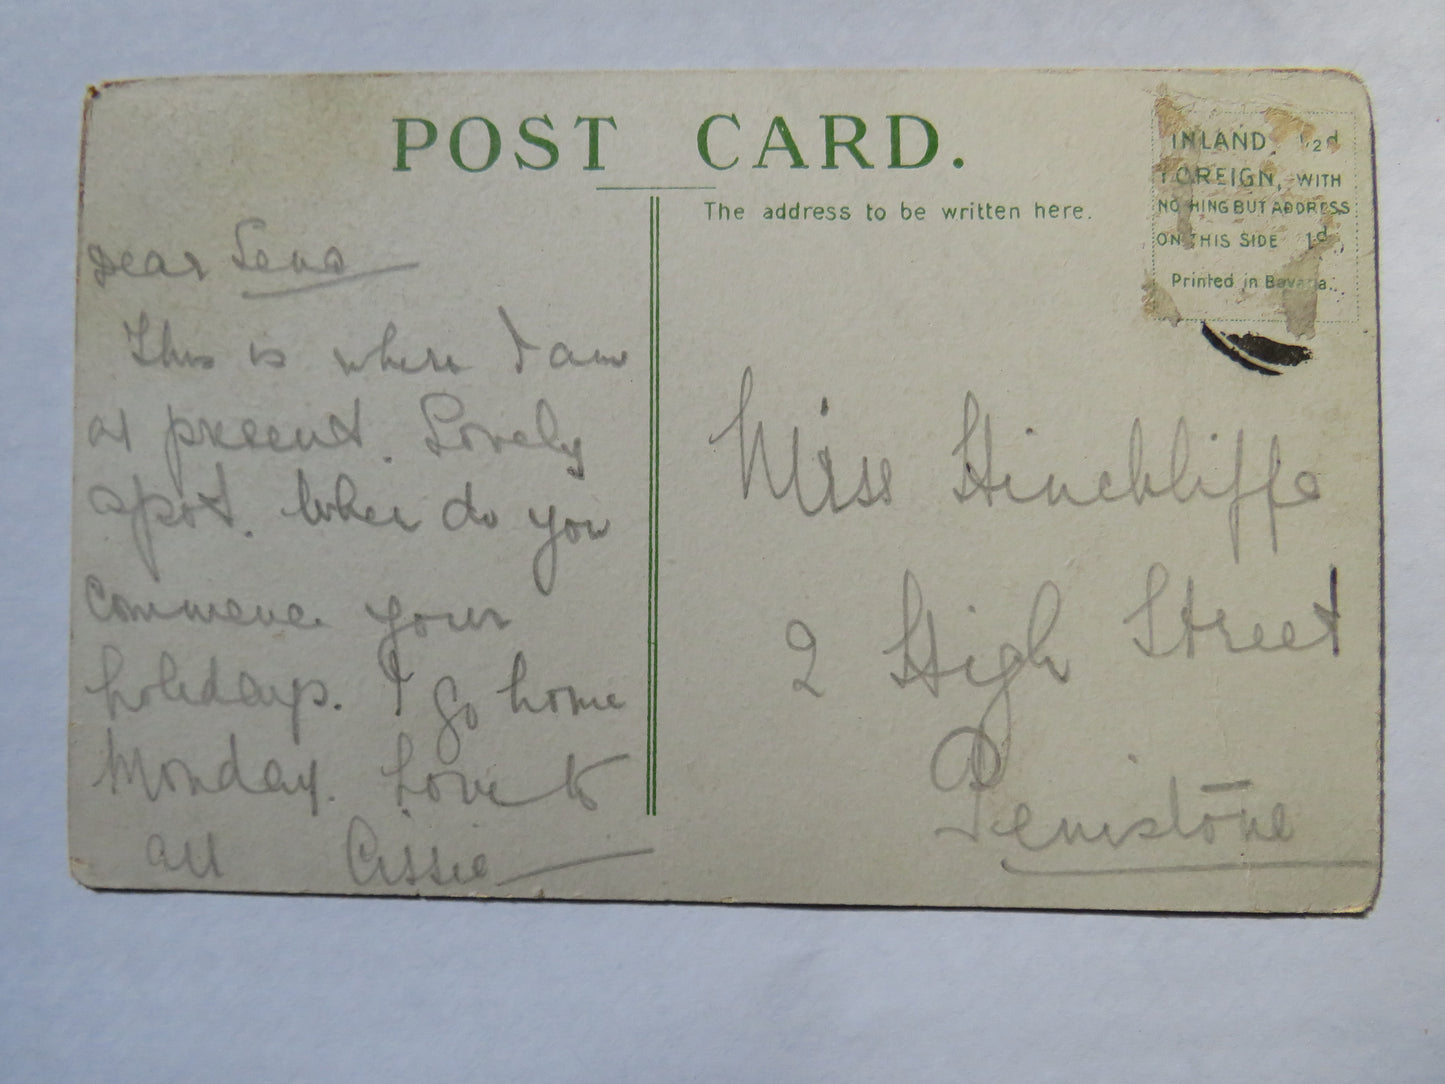 POST CARD.
The address to be written here.
INLAND, ½d
FOREIGN, WITH
NOTHING BUT ADDRESS
ON THIS SIDE 1d.
Printed in Bavaria.
Dear Lena
This is where I am
at present. Lovely
spot. When do you
commence your
holidays. I go home
Monday. Love to
all Cissie
Miss Hinchliffe
2 High Street
Penistone